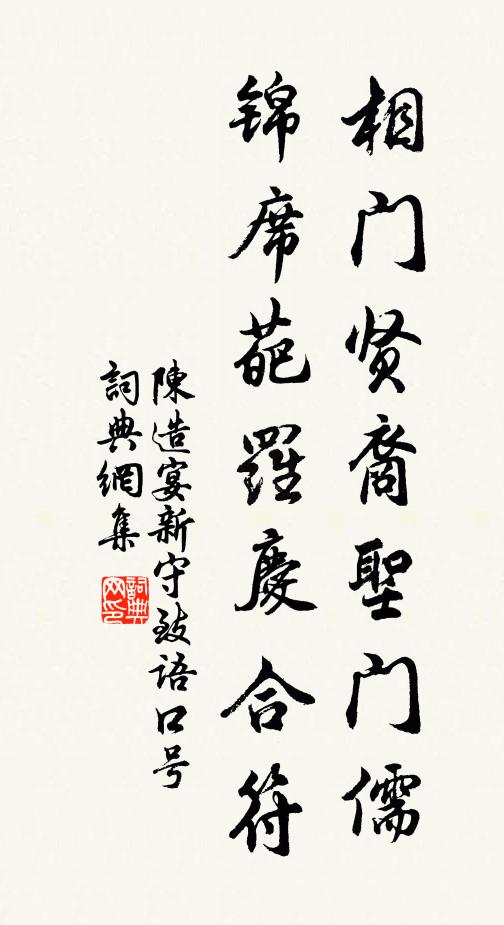 相门贤裔聖门儒
锦席葩羅慶合符
陳造宴新守致语口号
詞典網集
詞典网印